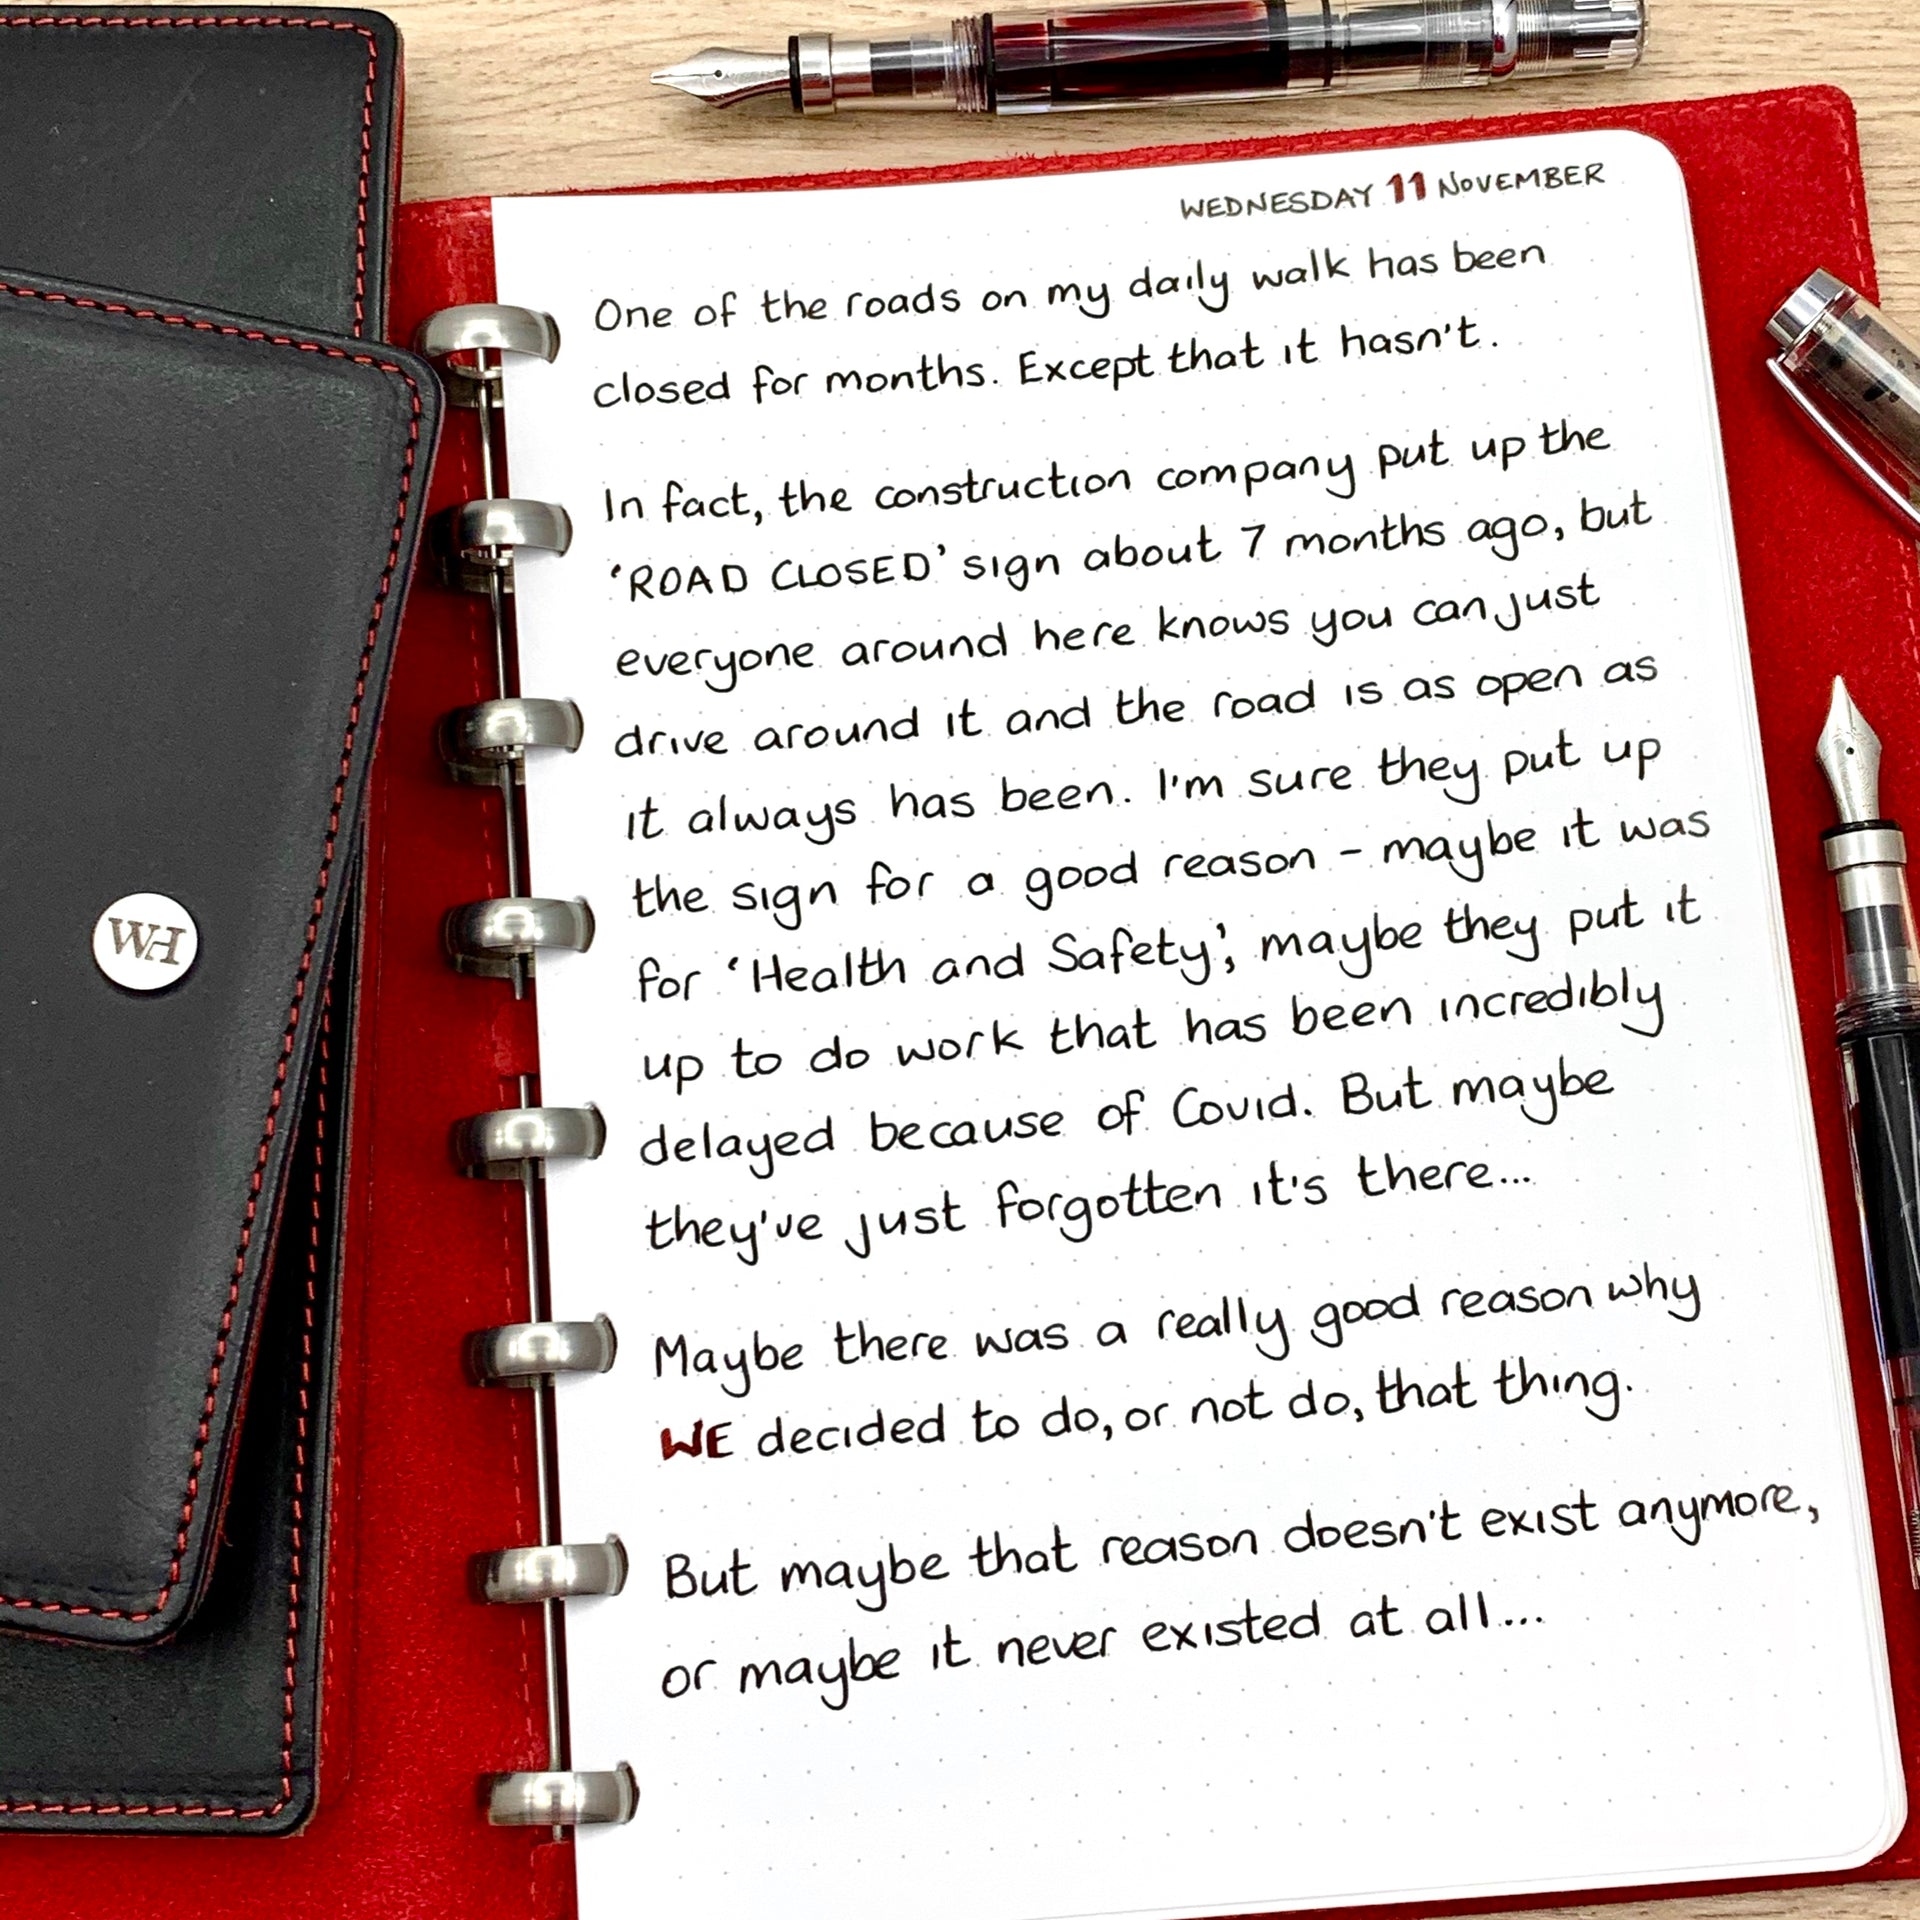 WEDNESDAY 11 NOVEMBER
One of the roads on my daily walk has been
closed for months. Except that it hasn't.
In fact, the construction company put up the
'ROAD CLOSED' sign about 7 months ago, but
everyone around here knows you can just
drive around it and the road is as open as
it always has been. I'm sure they put up
the sign for a good reason - maybe it was
for 'Health and Safety'; maybe they put it
up to do work that has been incredibly
delayed because of Covid. But maybe
they've just forgotten it's there...
Maybe there was a really good reason why
WE decided to do, or not do, that thing.
But maybe that reason doesn't exist anymore,
or maybe it never existed at all...
WH